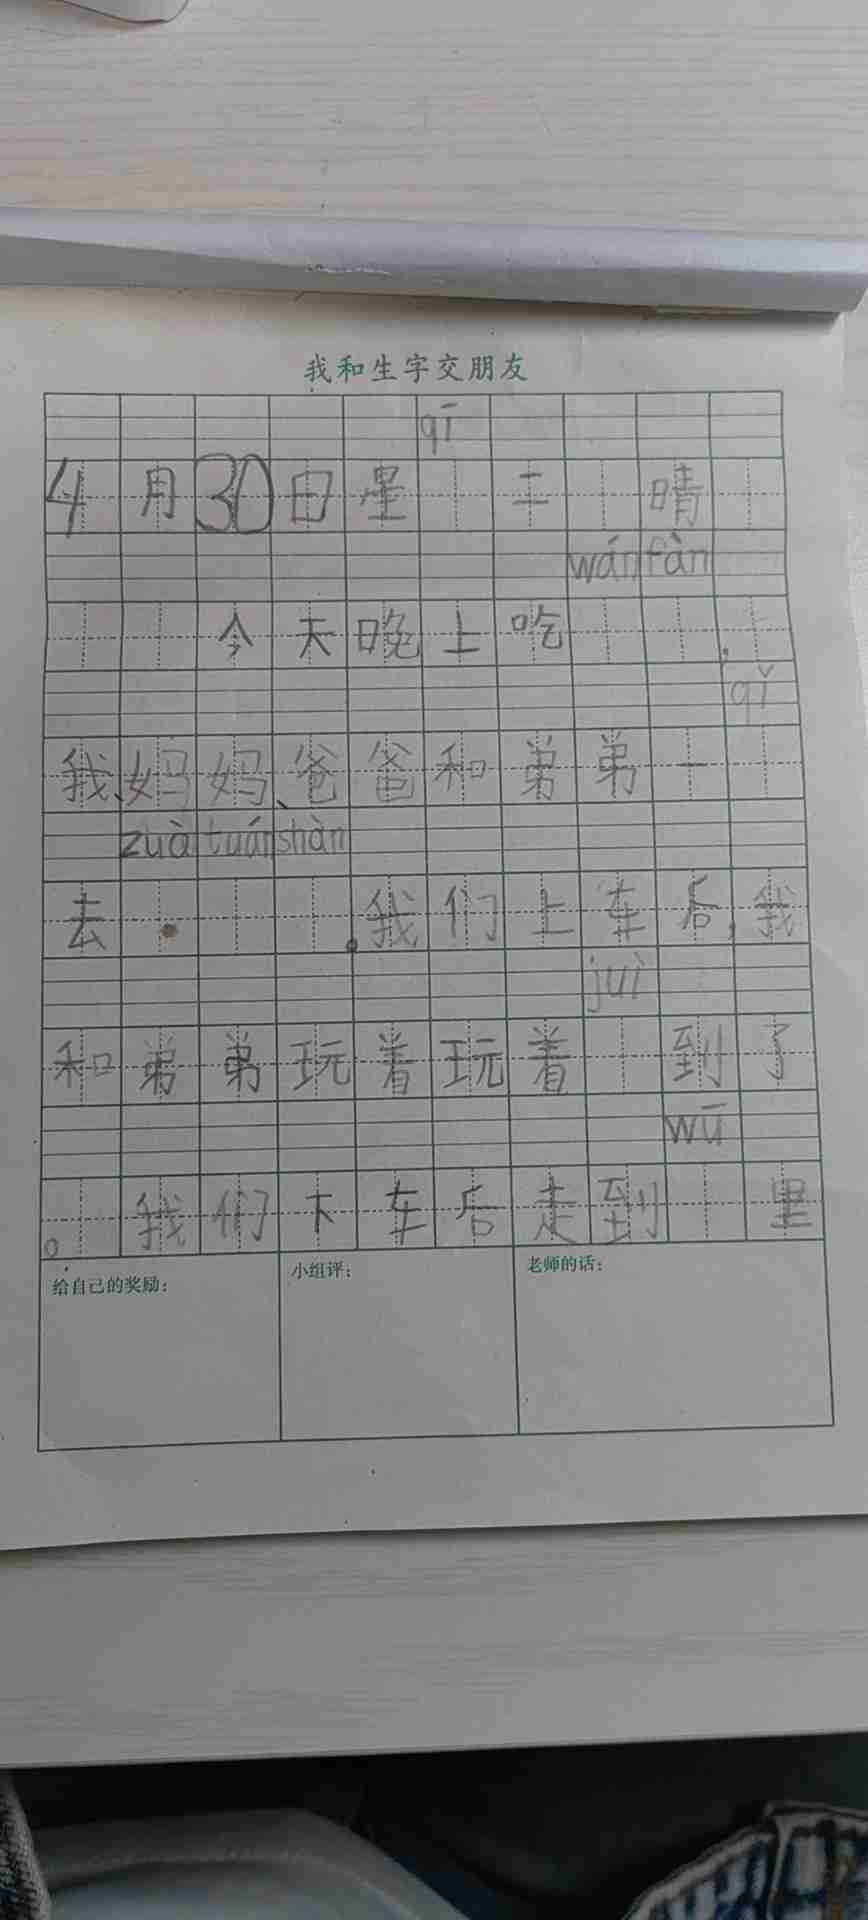 我和生字交朋友
qī
4月30日星 二 晴
wán fàn
今天晚上吃 ，
qǐ
我、妈妈、爸爸和弟弟一
zuà tuán shàn
去 。我们上车后，我
juì
和弟弟玩着玩着 到了
wū
。我们下车后走到 里
给自己的奖励：
小组评：
老师的话：